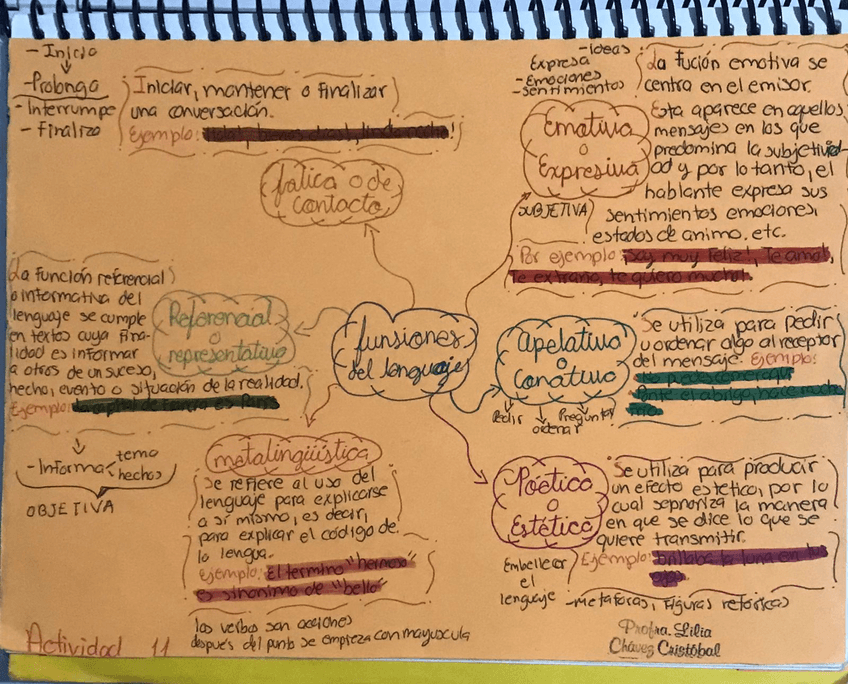 - Inicio
- Prolonga
- Interrumpe
- Finaliza
Iniciar, mantener o finalizar
una conversación.
Ejemplo:
fática o de
contacto
- Ideas
Expresa
- Emociones
- sentimientos
Emotiva
o
Expresiva
SUBJETIVA
La fución emotiva se
centra en el emisor.
Esta aparece en aquellos
mensajes en los que
predomina la subjetivid-
ad y por lo tanto, el
hablante expresa sus
sentimientos emociones,
estados de animo, etc.
Por ejemplo: ¡Soy muy feliz!, Te amo!,
Te extraño, te quiero mucho!.
La función referencial
o informativa del
lenguaje se cumple
en textos cuya fina-
lidad es informar
a otros de un suceso,
hecho, evento o situación de la realidad.
Ejemplo: La capital de Francia es París
Referencial
o
representativa
- Informa
tema
hechos
OBJETIVA
funsiones
del lenguaje
Apelativa
o
Conativa
Pedir
ordenar
Preguntar
Se utiliza para pedir
u ordenar algo al receptor
del mensaje. Ejemplo:
No puedes comer aquí
Ponte el abrigo, hace mucho
frío.
metalingüística
Se refiere al uso del
lenguaje para explicarse
a sí mismo, es decir,
para explicar el código de
la lengua.
Ejemplo: El termino "hermoso"
es sinonimo de "bello"
los verbos son acciones
después del punto se empieza con mayuscula
Poético
o
Estético
Embellecer
el
lenguaje
Se utiliza para producir
un efecto estetico, por lo
cual sepnoriza la manera
en que se dice lo que se
quiere transmitir.
Ejemplo: brillaba la luna en tus
ojos
- metaforas, Figuras retóricas
Actividad 11
Profra. Lilia
Chávez Cristóbal